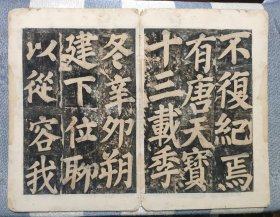 不復紀焉
有唐天寶
十三載季
冬辛卯朔
建下位聊
以從容我